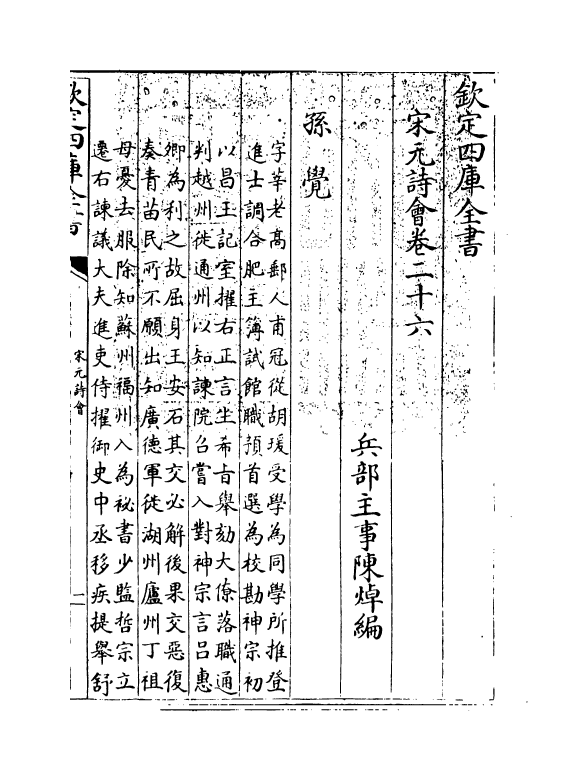 欽定四庫全書
宋元詩會卷二十六
兵部主事陳焯編
孫覺
字莘老高郵人甫冠從胡瑗受學為同學所推登
進士調合肥主簿試館職預首選為校勘神宗初
以昌王記室擢右正言坐希㫖舉劾大僚落職通
判越州徙通州以知諫院召嘗入對神宗言呂惠
卿為利之故屈身王安石其交必解後果交惡復
奏青苗民所不願出知廣德軍徙湖州廬州丁祖
母憂去服除知蘇州福州入為祕書少監哲宗立
遷右諫議大夫進吏侍擢御史中丞移疾提舉舒
欽定四庫全書
宋元詩會
一